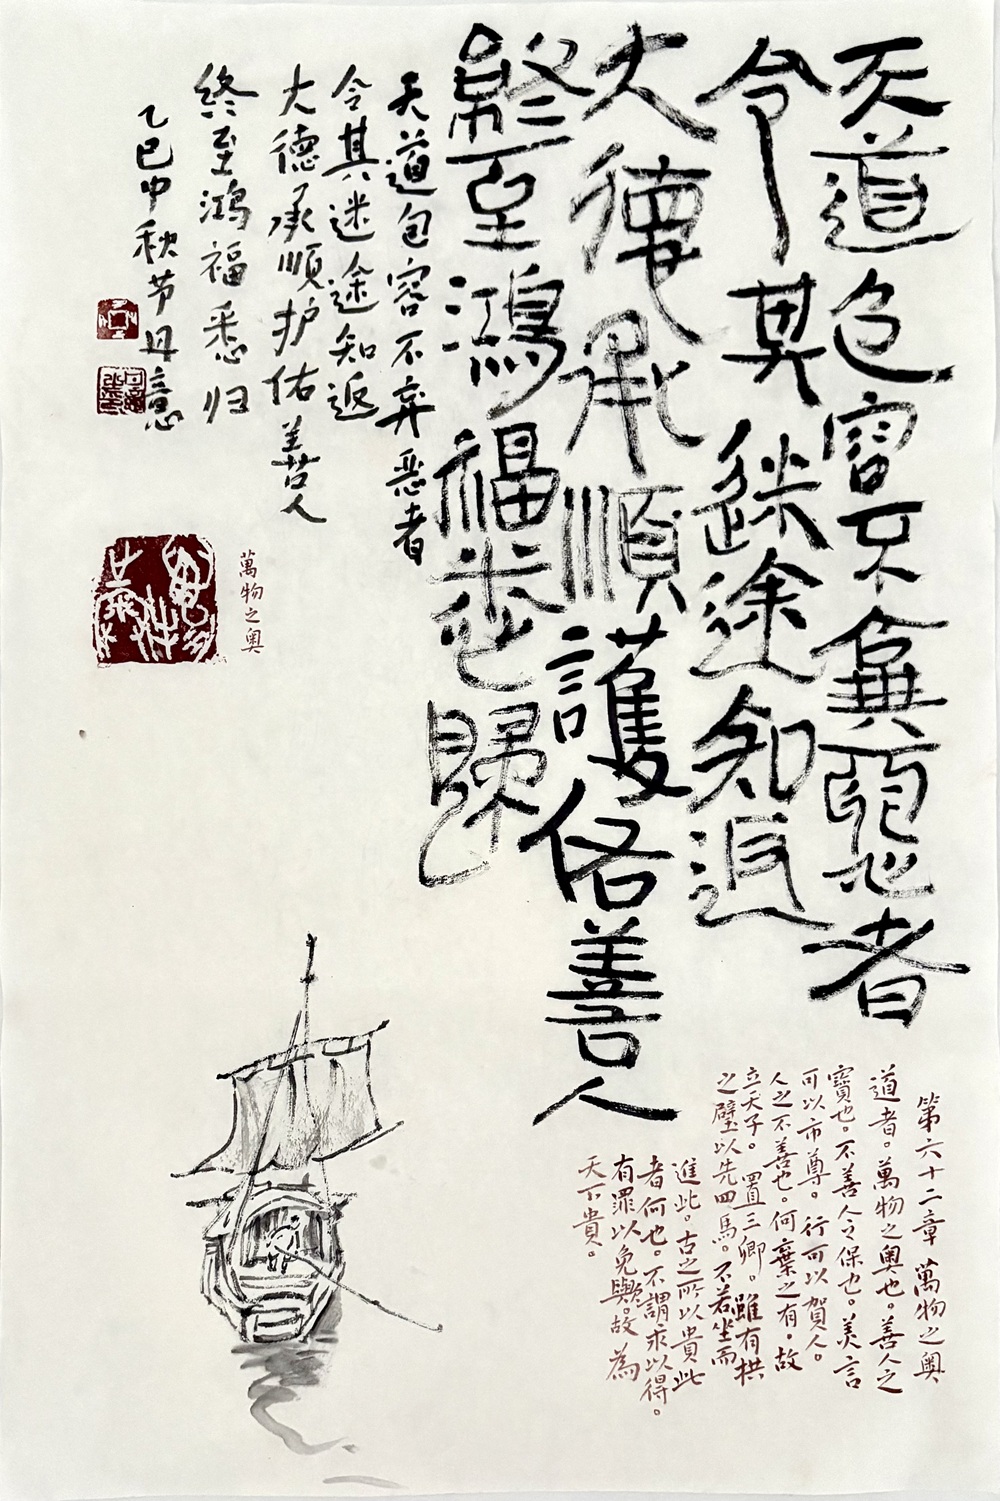 天道包容不棄惡者
令其迷途知返
大德承順護佑善人
終至鴻福悉歸
天道包容不弃恶者
令其迷途知返
大德承顺护佑善人
终至鸿福悉归
乙巳中秋节丹意
萬物之奥
第六十二章 萬物之奥
道者。萬物之奥也。善人之
寶也。不善人之保也。美言
可以市尊。行可以賀人。
人之不善也。何棄之有。故
立天子。置三卿。雖有拱
之璧以先四馬。不若坐而
進此。古之所以貴此
者何也。不謂求以得。
有罪以免與。故為
天下貴。